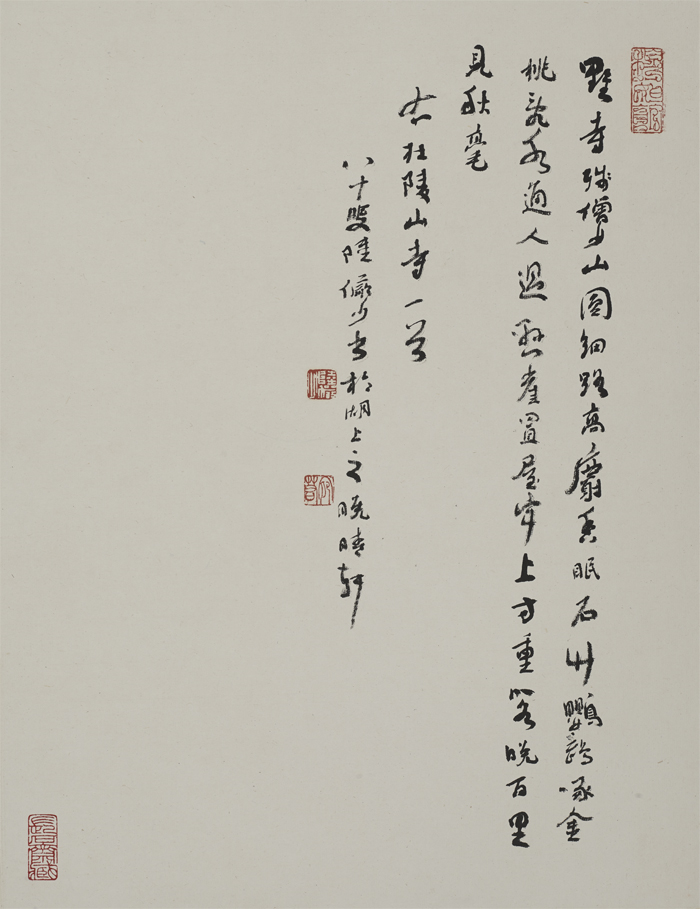 野寺殘僧少山園細路高麝香眠石竹鸚鵡啄金
桃亂水通人過懸崖置屋牢上方重閣晚百里
見秋毫
右杜陵山寺一首
八十叟陸儼少書於湖上之晚晴軒